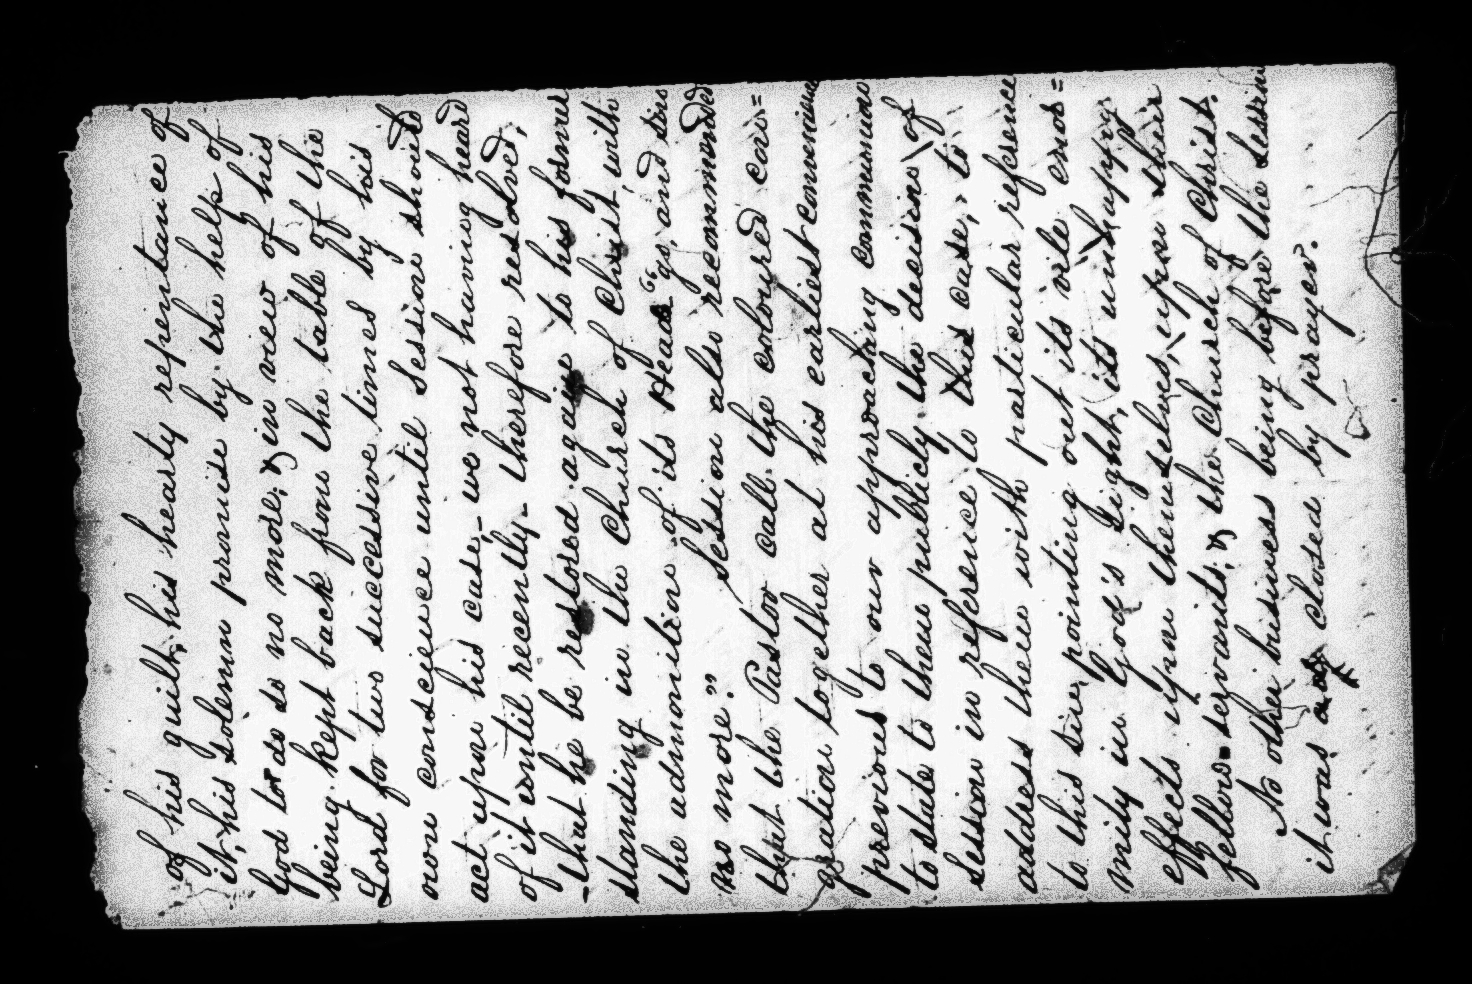 of his guilt, his hearty repentance of
it, his solemn promise by the help of
God to do so no more; & in view of his
being kept back from the table of the
Lord for two successive times by his
own conscience until Session should
act upon his case,- we not having heard
of it until recently- therefore resolved,
-that he be restored again to his former
standing in the church of Christ with
the admonition of its Head "go, and sin
no more." Session also recommended
that the Pastor call the coloured con=
gregation together at his earliest convenience
previous to our approaching communion
to state to them publicly the decision of
Session in reference to this case, to
address them with particular reference
to this sin, pointing out its vile enor=
mity in God's sight, its unhappy
effects upon themselves, upon their
fellow=servants; & the Church of Christ.
No other business being before the Session
it was closed by prayer.